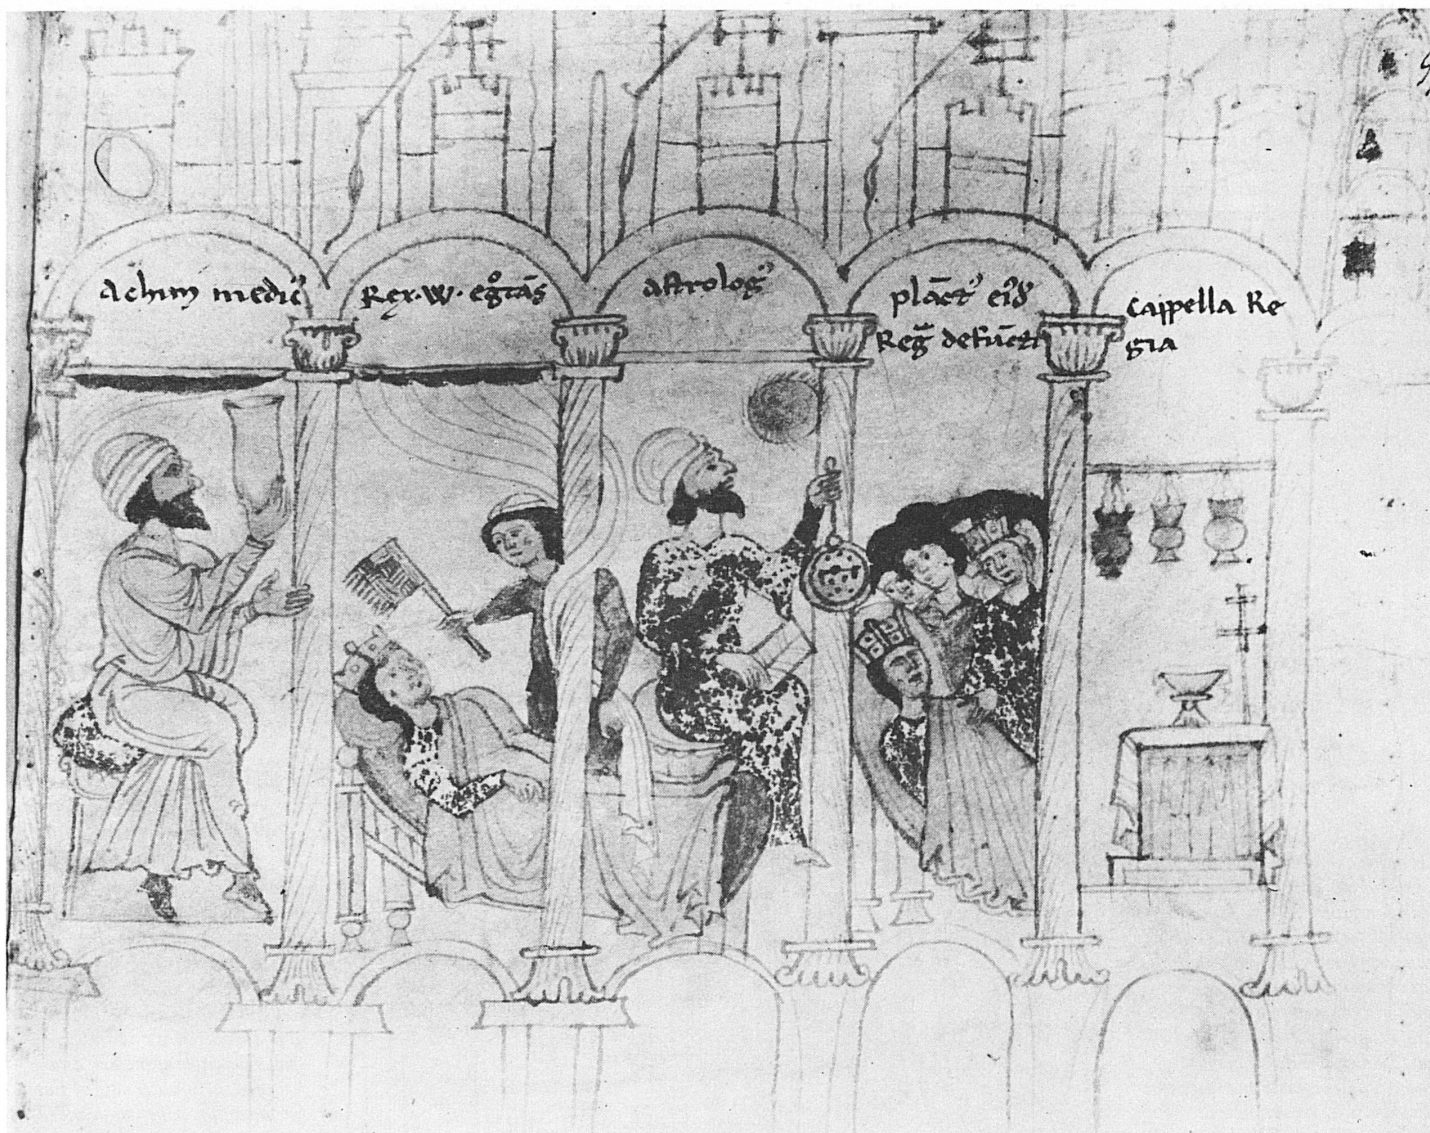 Achim medic̓
Rex·W· egͦtās
Astrolog̓
plāct̓ eiͥd̓
Reg̃ defūcti
Cappella Re
gia